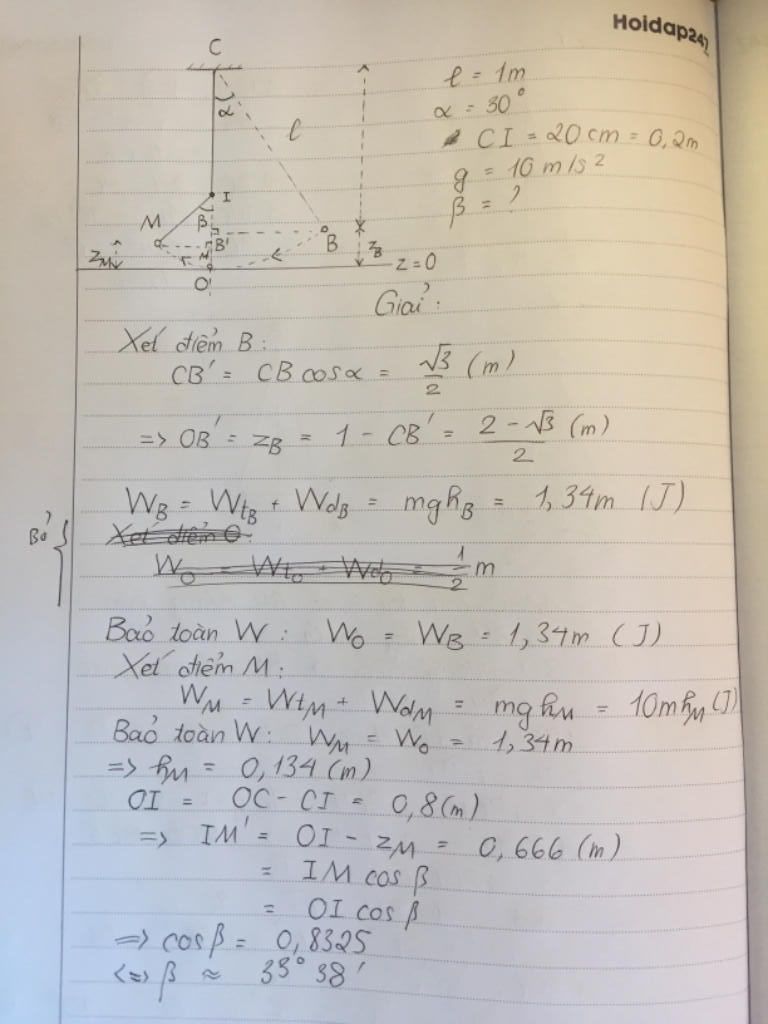 Hoidap247
C
α
l
I
β
M
B'
B
M'
z_M
z_B
z = 0
O
l = 1m
α = 30°
CI = 20 cm = 0,2m
g = 10 m/s²
β = ?
Giải:
Xét điểm B:
CB' = CB cosα = √3/2 (m)
=> OB' = z_B = 1 - CB' = (2 - √3)/2 (m)
W_B = Wt_B + Wđ_B = mgh_B = 1,34m (J)
Bỏ
Xét điểm O:
W_O = Wt_O + Wđ_O = 1/2 m
Bảo toàn W: W_O = W_B = 1,34m (J)
Xét điểm M:
W_M = Wt_M + Wđ_M = mgh_M = 10mh_M (J)
Bảo toàn W: W_M = W_O = 1,34m
=> h_M = 0,134 (m)
OI = OC - CI = 0,8(m)
=> IM' = OI - z_M = 0,666 (m)
= IM cos β
= OI cos β
=> cos β = 0,8325
<=> β ≈ 33° 38'